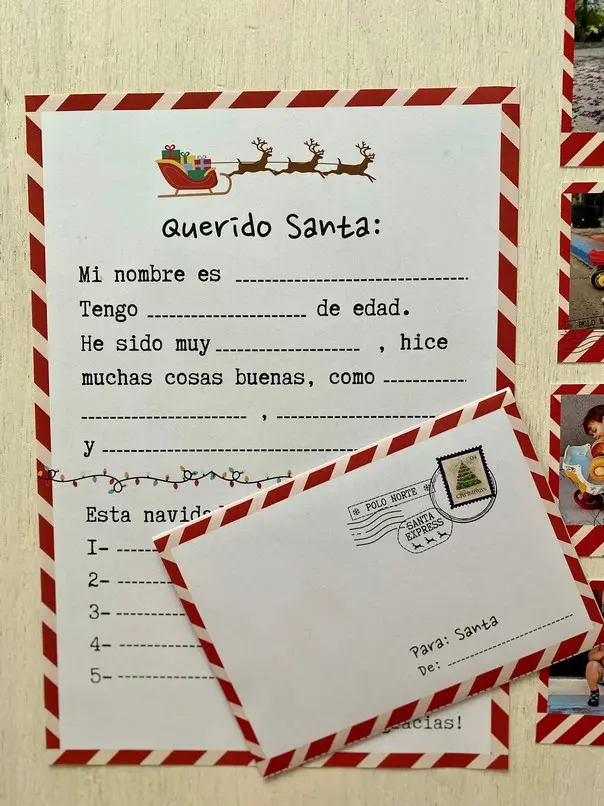 Querido Santa:
Mi nombre es
Tengo de edad.
He sido muy , hice
muchas cosas buenas, como
,
y
Esta
1-
2-
3-
4-
5-
POLO NORTE
SANTA
EXPRESS
CHRISTMAS
Para: Santa
De: